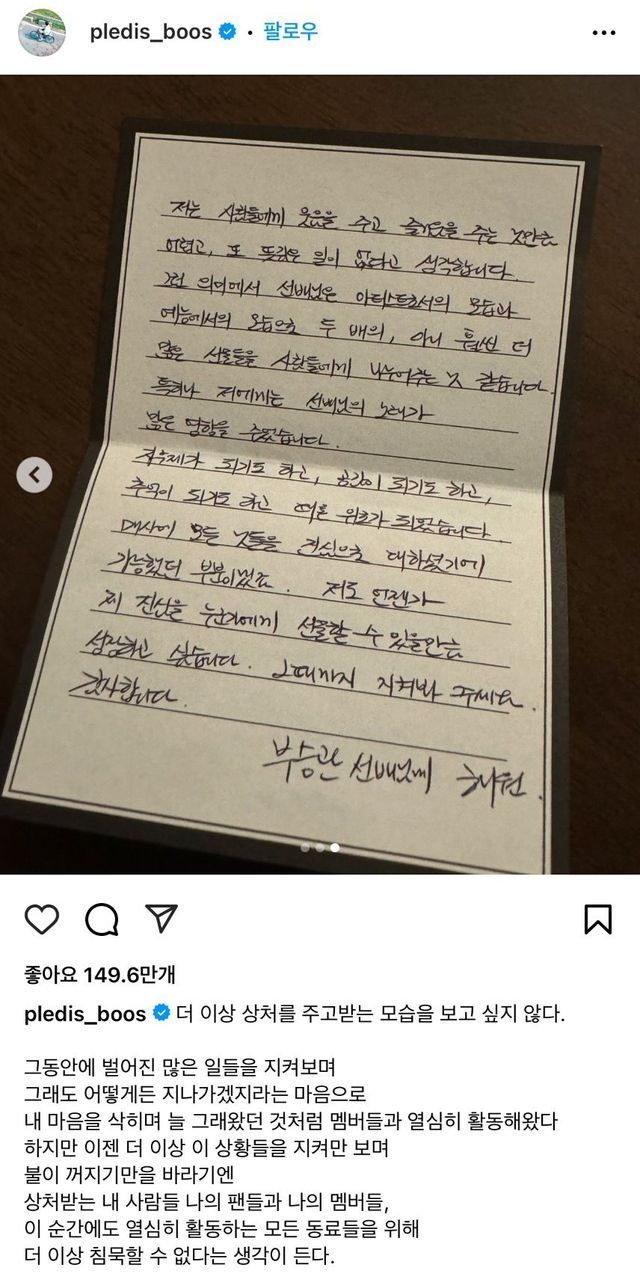 pledis_boos · 팔로우
저는 사람들에게 웃음을 주고 즐거움을 주는 것만큼
어렵고, 또 뜻깊은 일이 없다고 생각합니다.
그런 의미에서 선배님은 아티스트로서의 모습과
예능에서의 모습으로 두 배의, 아니 훨씬 더
많은 선물들을 사람들에게 나누어주는 것 같습니다.
특히나 저에게는 선배님의 노래가
많은 영향을 주었습니다.
되기도 하고, 공감이 되기도 하고,
추억이 되기도 하고 때론 위로가 되었습니다.
매사에 모든 것들을 진심으로 대하셨기에
가능했던 부분이겠죠. 저도 언젠가
제 진심을 누군가에게 선물할 수 있을만큼
성장하고 싶습니다. 그때까지 지켜봐 주세요.
감사합니다.
부승관 선배님께
좋아요 149.6만개
pledis_boos 더 이상 상처를 주고받는 모습을 보고 싶지 않다.
그동안에 벌어진 많은 일들을 지켜보며
그래도 어떻게든 지나가겠지라는 마음으로
내 마음을 삭히며 늘 그래왔던 것처럼 멤버들과 열심히 활동해왔다
하지만 이젠 더 이상 이 상황들을 지켜만 보며
불이 꺼지기만을 바라기엔
상처받는 내 사람들 나의 팬들과 나의 멤버들,
이 순간에도 열심히 활동하는 모든 동료들을 위해
더 이상 침묵할 수 없다는 생각이 든다.